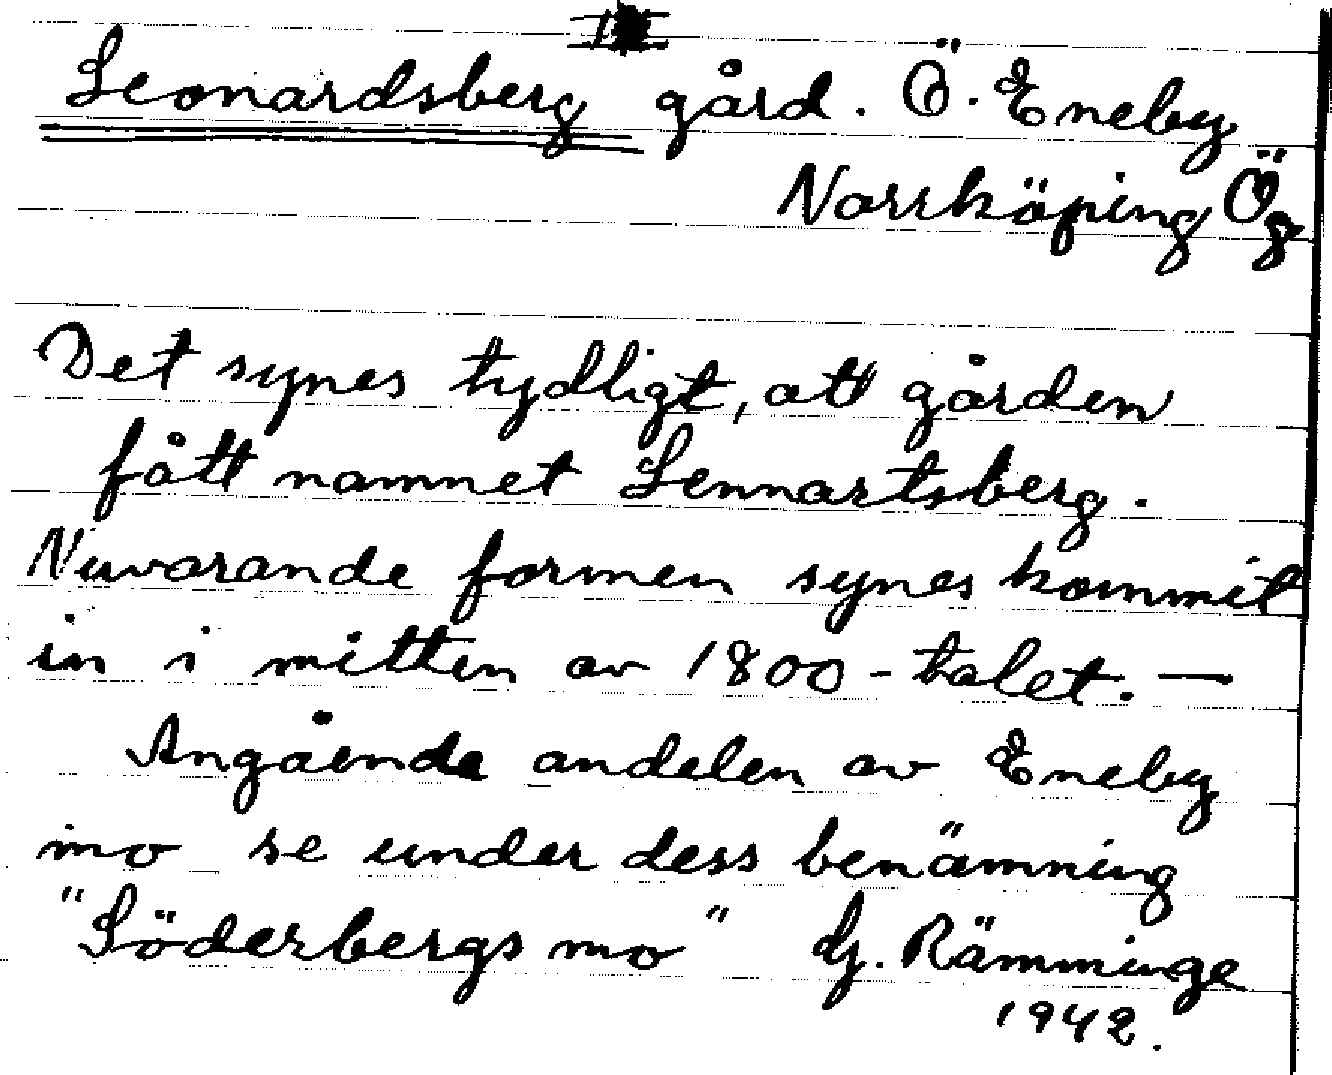 Leonardsberg gård. Ö. Eneby
Norrköping Ög
Det synes tydligt, att gården
fått namnet Lennartsberg.
Nuvarande formen synes kommit
in i mitten av 1800-talet. —
Angående andelen av Eneby
mo se under dess benämning
"Söderbergs mo" Hj. Rämminge
1942.